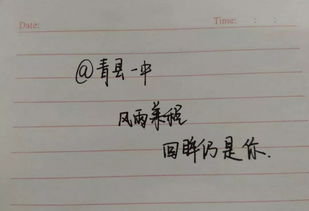 Date: Time: : :
@青县一中
风雨兼程
回眸仍是你.